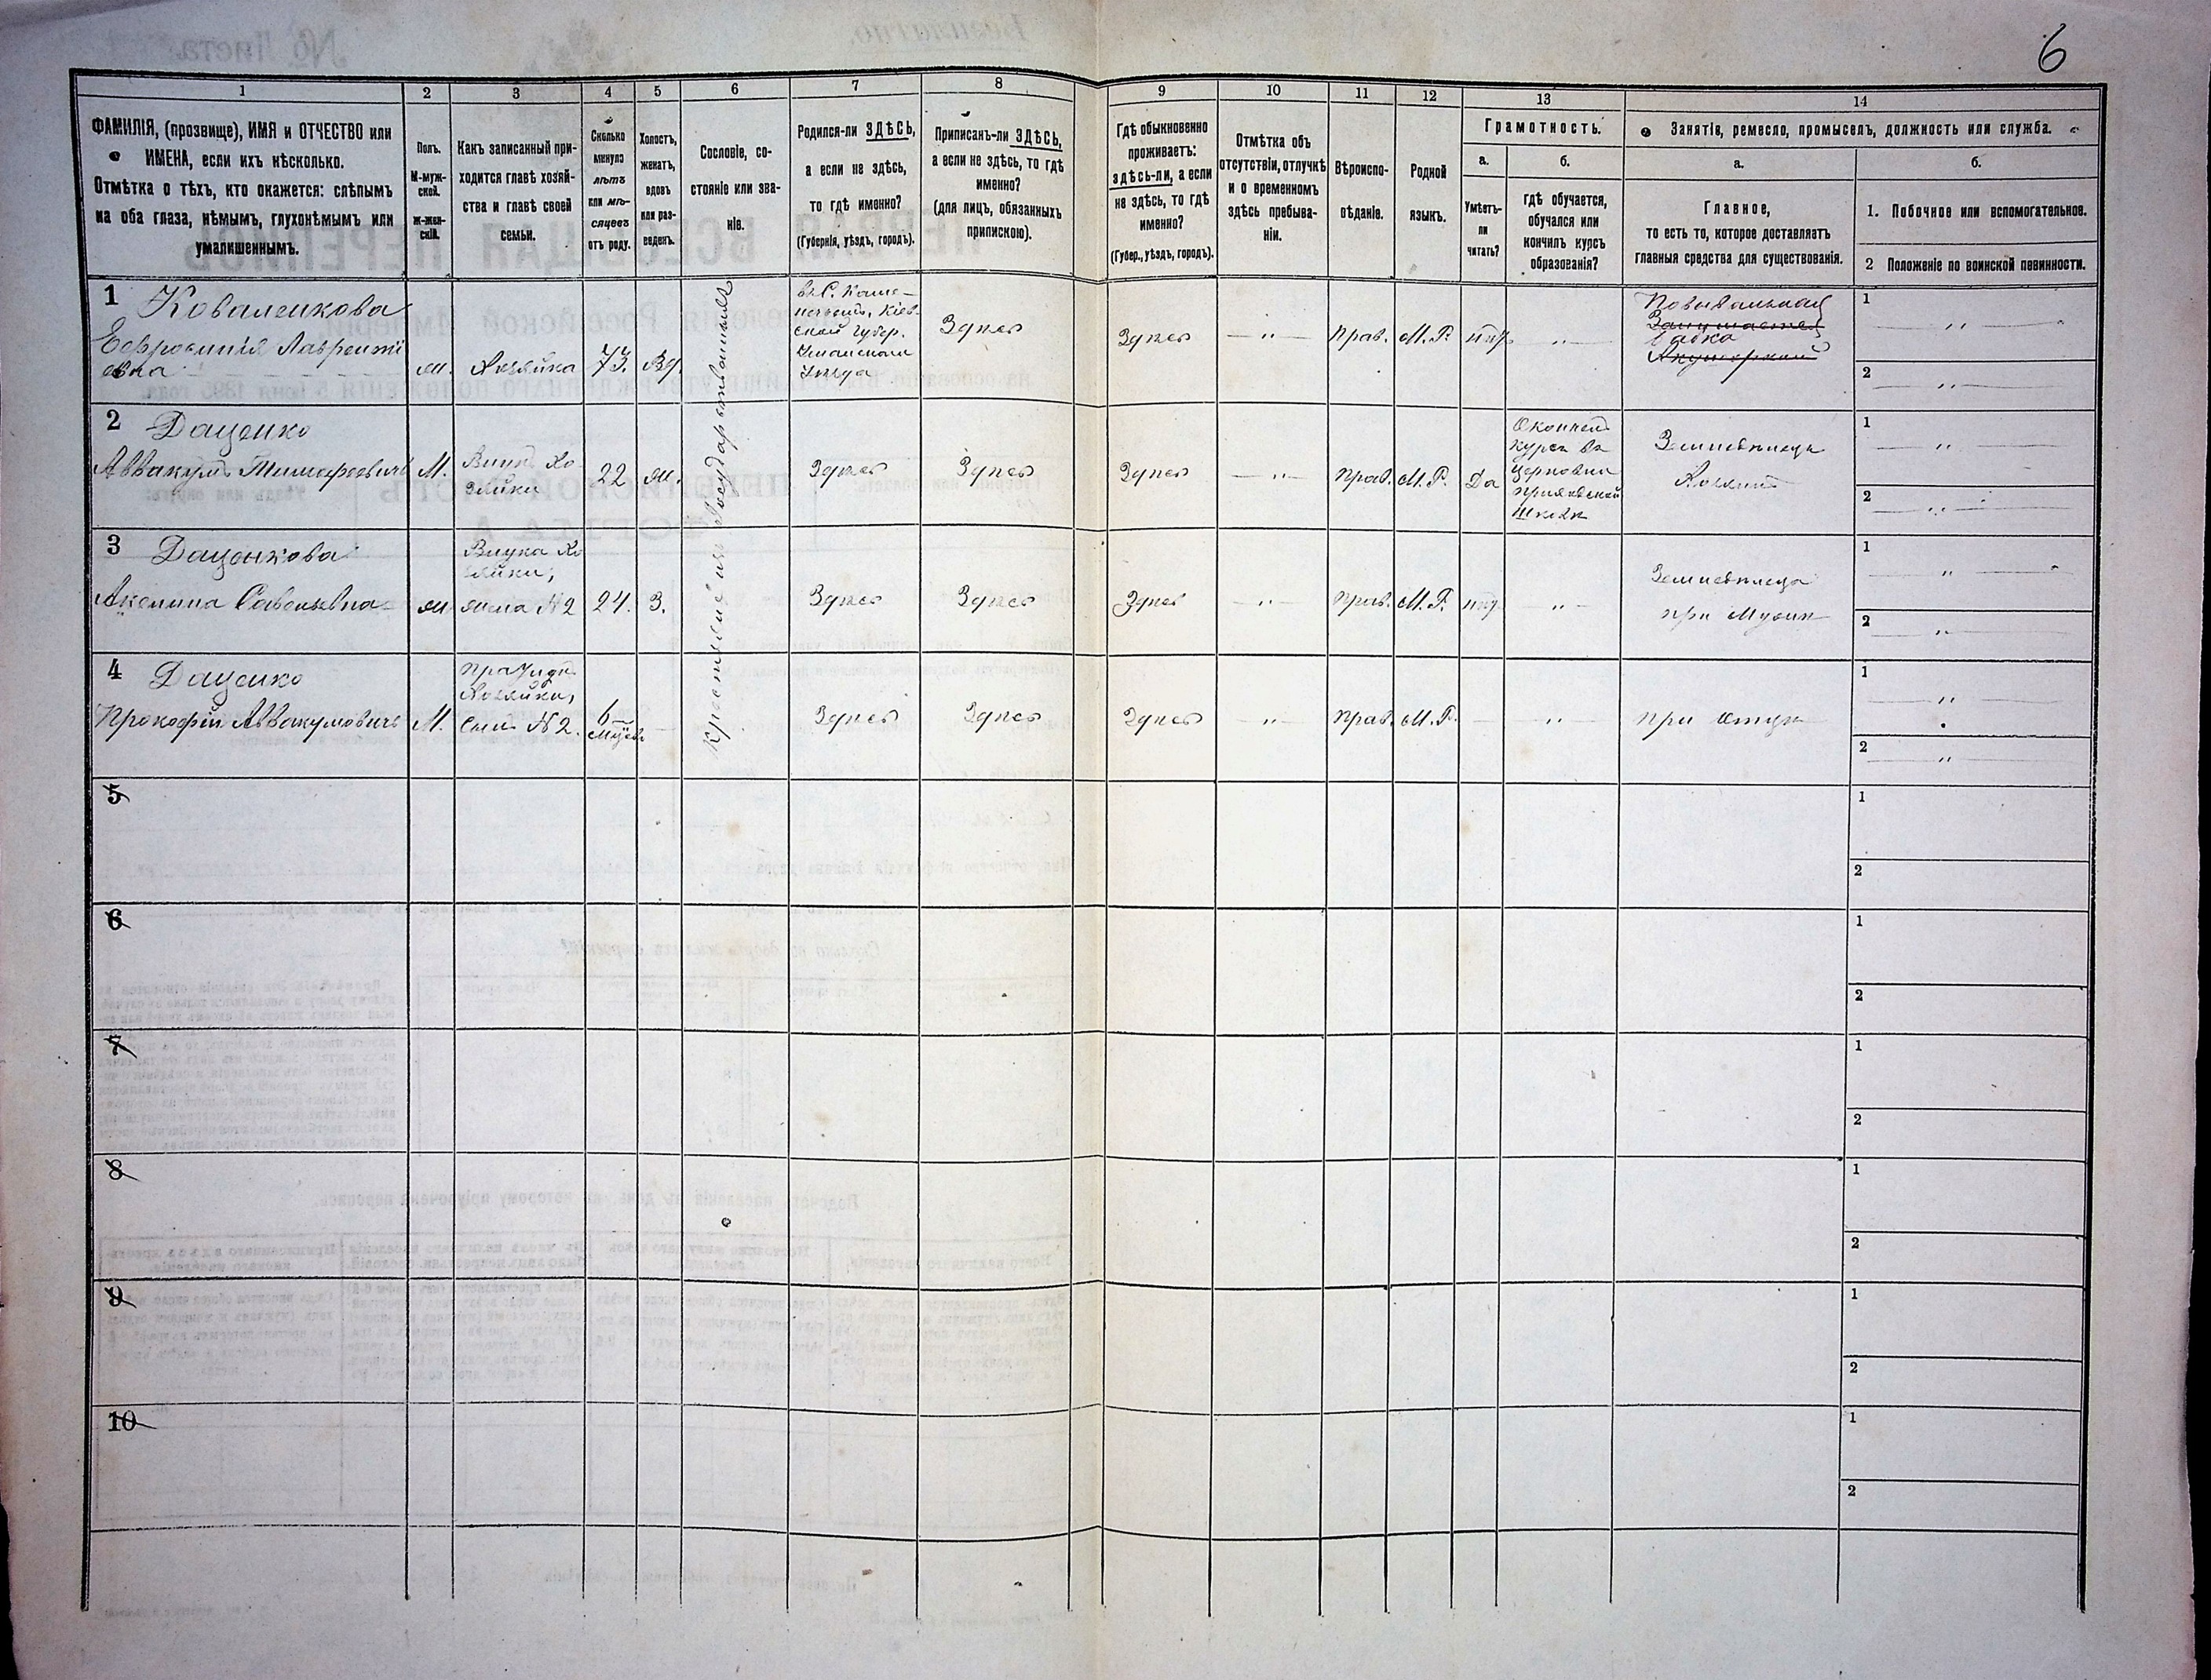 6
1 2 3 4 5 6 7 8 9 10 11 12 13 14
ФАМИЛІЯ, (прозвище), ИМЯ и ОТЧЕСТВО или
ИМЕНА, если ихъ нѣсколько.
Отмѣтка о тѣхъ, кто окажется: слѣпымъ
на оба глаза, нѣмымъ, глухонѣмымъ или
умалишеннымъ.
Полъ.
М-муж-
ской.
Ж-жен-
скій.
Какъ записанный при-
ходится главѣ хозяй-
ства и главѣ своей
семьи.
Сколько
минуло
лѣтъ
или мѣ-
сяцевъ
отъ роду.
Холостъ,
женатъ,
вдовъ
или раз-
веденъ.
Сословіе, со-
стояніе или зва-
ніе.
Родился-ли ЗДѢСЬ,
а если не здѣсь,
то гдѣ именно?
(Губернія, уѣздъ, городъ).
Приписанъ-ли ЗДѢСЬ,
а если не здѣсь, то гдѣ
именно?
(для лицъ, обязанныхъ
припискою).
Гдѣ обыкновенно
проживаетъ:
здѣсь-ли, а если
не здѣсь, то гдѣ
именно?
(Губер., уѣздъ, городъ).
Отмѣтка объ
отсутствіи, отлучкѣ
и о временномъ
здѣсь пребыва-
ніи.
Вѣроиспо-
вѣданіе.
Родной
языкъ.
Грамотность.
а. б.
Умѣетъ-
ли
читать?
гдѣ обучается,
обучался или
кончилъ курсъ
образованія?
Занятіе, ремесло, промыселъ, должность или служба.
а. б.
Главное,
то есть то, которое доставляетъ
главныя средства для существованія.
1. Побочное или вспомогательное.
2 Положеніе по воинской повинности.
Крестьяне изъ Государственныхъ
1 Коваленкова
Ефросинія Лаврентi
евна
ж.
Хозяйка
73.
Вд.
въ С. Каме-
Кіев-
ской Губер.
Уманскаго
Уѣзда
Здѣсь
Здѣсь
— „ —
Прав.
М. Р.
нѣтъ
„ —
Повивальная
Занимается
бабка
Акушеркой
1 „
2 „
2 Даценко
Аввакумъ Тимофеевичъ
М.
Внукъ Хо
зяйки
22
ж.
Здѣсь
Здѣсь
Здѣсь
— „
Прав.
М. Р.
Да
Окончилъ
курсъ въ
Церковно
приходской
Школѣ
Земледѣлецъ
Хозяинъ
1 „
2 „
3 Даценкова
Акелина Савельевна
ж
Внука Хо
зяйки,
жена №2
24.
З.
Здѣсь
Здѣсь
Здѣсь
— „ —
Прав.
М. Р.
нѣтъ
„ —
Земледѣлеца
при Мужѣ
1 „
2 „
4 Даценко
Прокофій Аввакумовичъ
М.
ПраУнукъ
Хозяйки,
Сынъ №2.
6
мѣсяц.
—
Здѣсь
Здѣсь
Здѣсь
„ —
Прав.
М. Р.
—
„ —
при Отцѣ
1 „
2 „
5
1
2
6
1
2
7
1
2
8
1
2
9
1
2
10
1
2